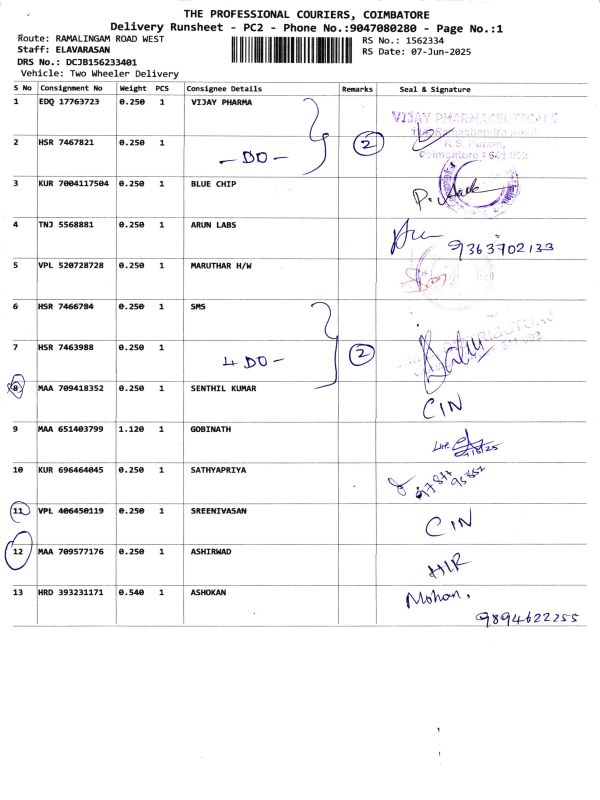 THE PROFESSIONAL COURIERS, COIMBATORE
Delivery Runsheet - PC2 - Phone No.:9047080280 - Page No.:1
Route: RAMALINGAM ROAD WEST
RS No.: 1562334
Staff: ELAVARASAN
RS Date: 07-Jun-2025
DRS No.: DCJB156233401
Vehicle: Two Wheeler Delivery
S No Consignment No Weight PCS Consignee Details Remarks Seal & Signature
1 EDQ 17763723 0.250 1 VIJAY PHARMA
VIJAY PHARMACEUTICALS
2 HSR 7467821 0.250 1 - DO - 2
R.S. Puram,
Coimbatore : 641 002
3 KUR 7004117504 0.250 1 BLUE CHIP
4 TNJ 5568881 0.250 1 ARUN LABS
9363702133
5 VPL 520728728 0.250 1 MARUTHAR H/W
6 HSR 7466784 0.250 1 SMS
7 HSR 7463988 0.250 1 DO - 2
8 MAA 709418352 0.250 1 SENTHIL KUMAR CIN
9 MAA 651403799 1.120 1 GOBINATH
10 KUR 696464045 0.250 1 SATHYAPRIYA
11 VPL 406450119 0.250 1 SREENIVASAN CIN
12 MAA 709577176 0.250 1 ASHIRWAD
13 HRD 393231171 0.540 1 ASHOKAN Mohan.
9894622255